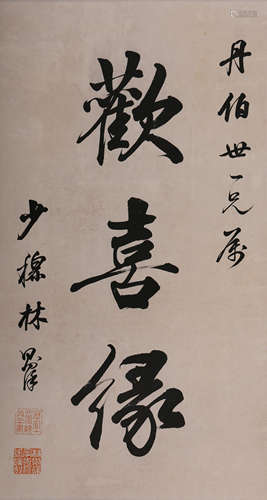 丹伯世一兄属
歡喜緣
少穆林則徐